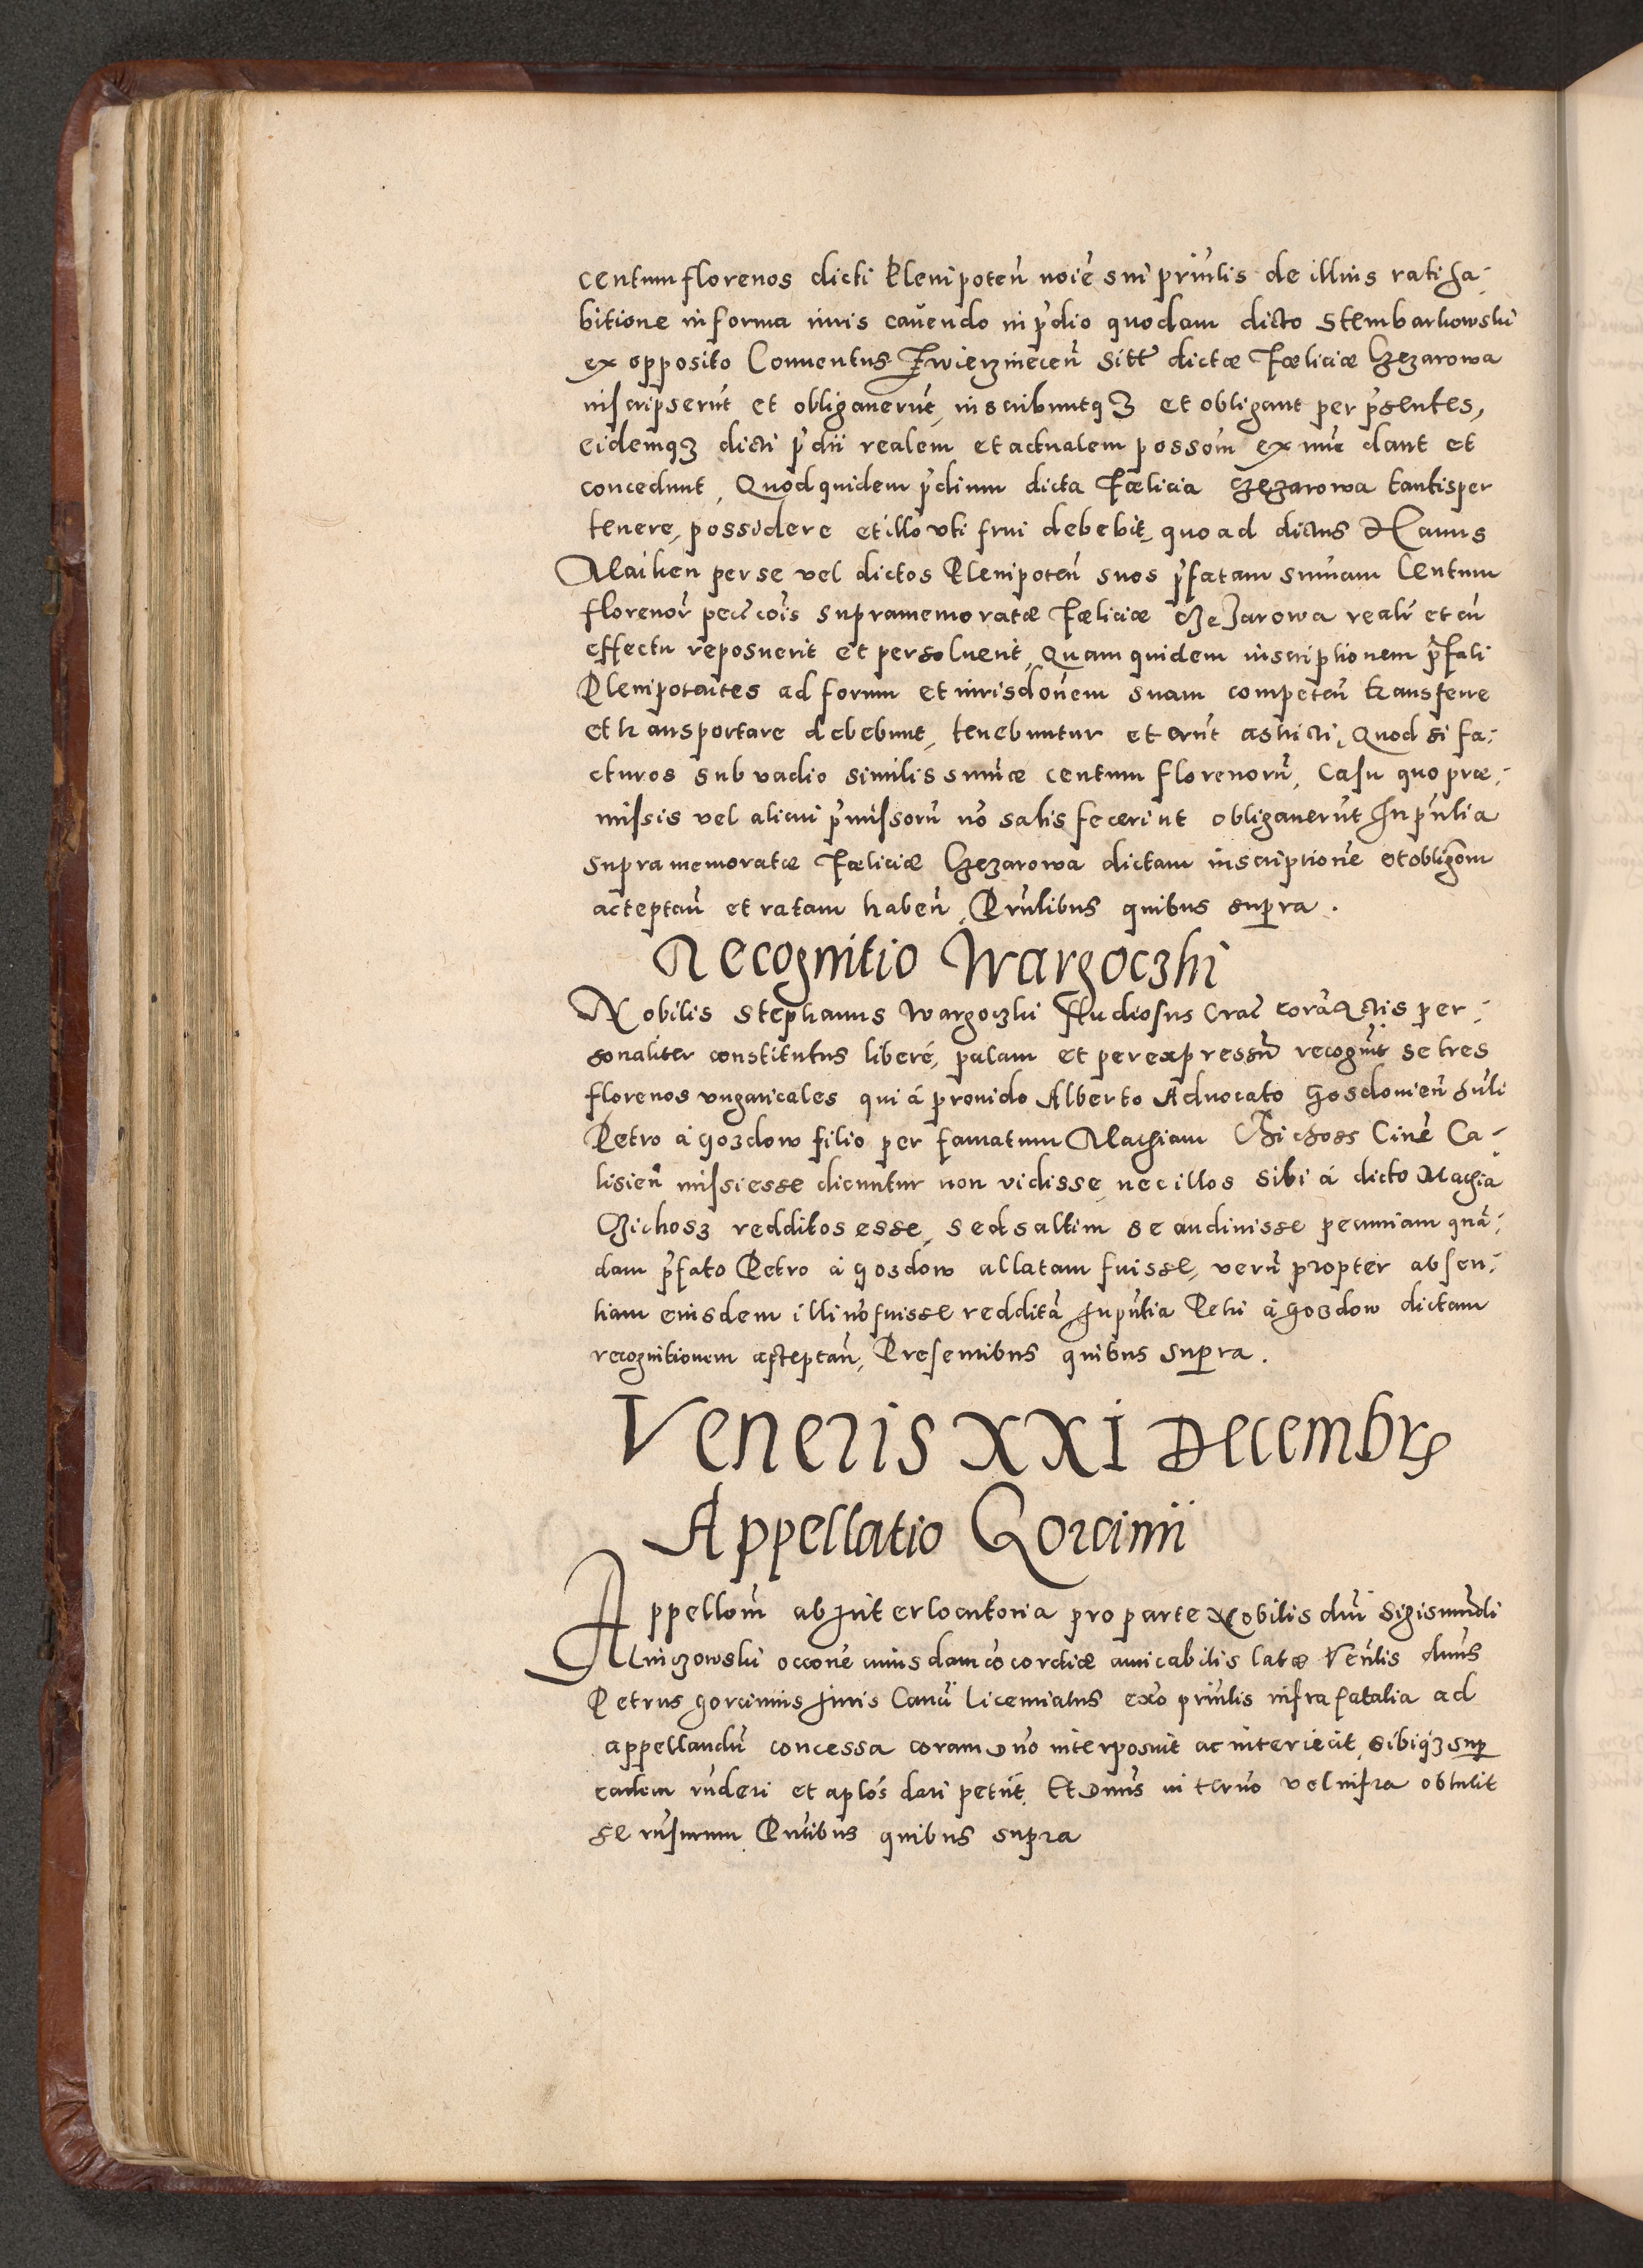 centum florenos dicti Plenipoteñ noiẽ sui princlis de illius ratiha-
bitione in forma iuris cavendo in p̃dio quodam dicto Stembarkowski
ex opposito Conuentus Zwierzinieceñ sitt dictæ Fœliciæ Czezarowa
inscripserũt et obligauerũt, inscribuntq3 et obligant per p̃sentes,
eidemq3 dicti p̃dii realem et actualem possom̃ ex nũc dant et
concedunt, Quod quidem p̃dium dicta Fœlicia Czezarowa tantisper
tenere, possidere et illo vti frui debebit, quoad dictus Hanus
Maiken per se vel dictos Plenipoteñ suos p̃fatam sum̃am Centum
florenor̃ pec̃ cõis supramemoratæ Fœliciæ Czezarowa realr̃ et cũ
effectu reposuerit et persoluerit, Quam quidem inscriptionem p̃fati
Plenipotentes ad forum et iurisdõnem suam competeñ transferre
et transportare debebunt, tenebuntur et erũt astricti, Quod si fa-
cturos sub vadio similis sum̃æ centum florenorũ, Casu quo præ-
missis vel alicui p̃missorũ nõ satisfecerint obligauerũt In pñtia
supramemoratæ Fœliciæ Czezarowa dictam inscriptionẽ et obligõm
acceptañ et ratam habeñ, Pñtibus quibus supra.
Recognitio Wargoczki
Nobilis Stephanus Wargoczki Studiosus Crac̃ corã Actis per-
sonaliter constitutus liberé, palam et per expressũ recognit se tres
florenos vngaricales qui á prouido Alberto Aduocato Gosdouieñ
Petro á Gozdow filio per famatum Mathiam Cichosz Ciuẽ Ca-
lisieñ missi esse dicuntur non vidisse, nec illos sibi á dicto Mathia
Cichosz redditos esse, sed saltim se audiuisse pecuniam quã-
dam p̃fato Petro á Gosdow allatam fuisse, verũ propter absen-
tiam eiusdem illi nõ fuisse redditã In pñtia Petri á Gozdow dictam
recognitionem acceptañ, Presentibus quibus supra.
Veneris XXI Decembrs
Appellatio Gorcinii
Appellom̃ ab Interlocutoria pro parte Nobilis dñi Sigismũdi
Mniczowski occõne cuiusdam cõcordiæ amicabilis latæ Veñlis dñus
Petrus Gorcinius Iuris Canci Licentiatus exõ prinlis infra fatalia ad
appellandũ concessa coram Dño interposuit ac interiecit, sibiq3 sup
eadem rñderi et aplos dari petiit, Et Dnus in termo vel infra obtulit
se rñsurum Pñtibus quibus supra